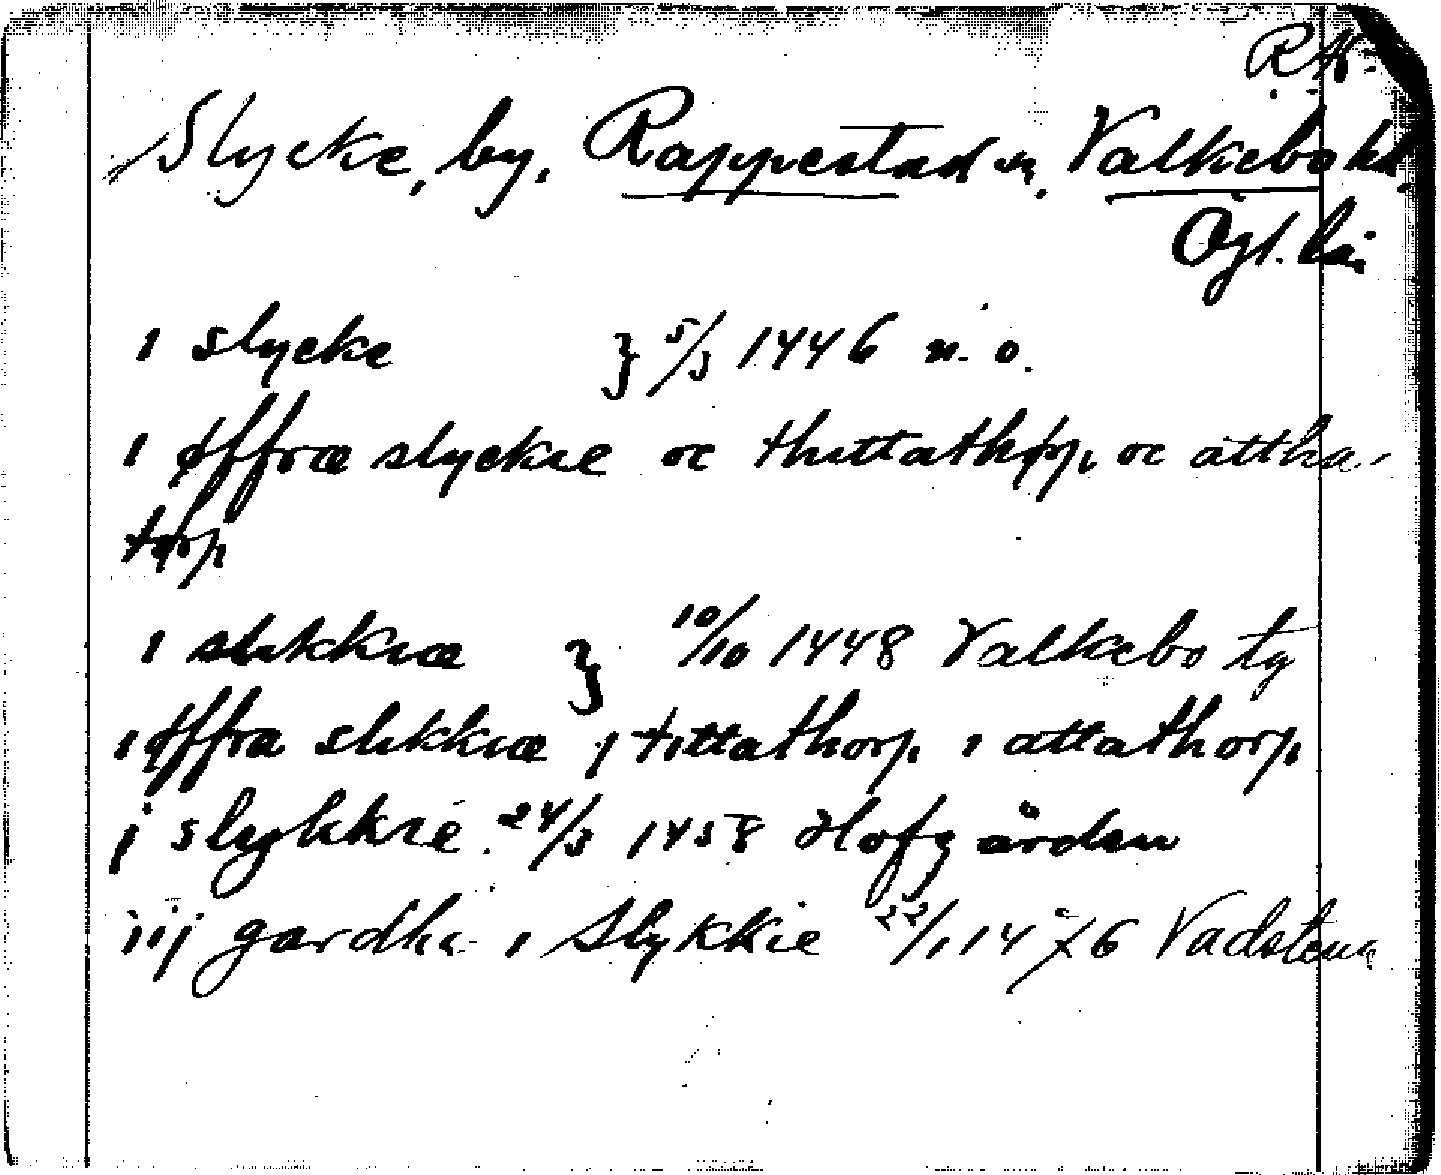 R.A.
Slycke, by, Rappestad sn, Valkebo hd,
Ögl. län
i slycke } 5/3 1446 n. o.
i øffræ slyckie oc thittathørp, oc attha-
tørp
i slikkiæ } 10/10 1448 Valkebo tg
i øffra slikkiæ j tittathorp i attathorp
j slykkie 24/3 1458 Hofgården
iij gardha i Slykkie 22/1 1476 Vadstena